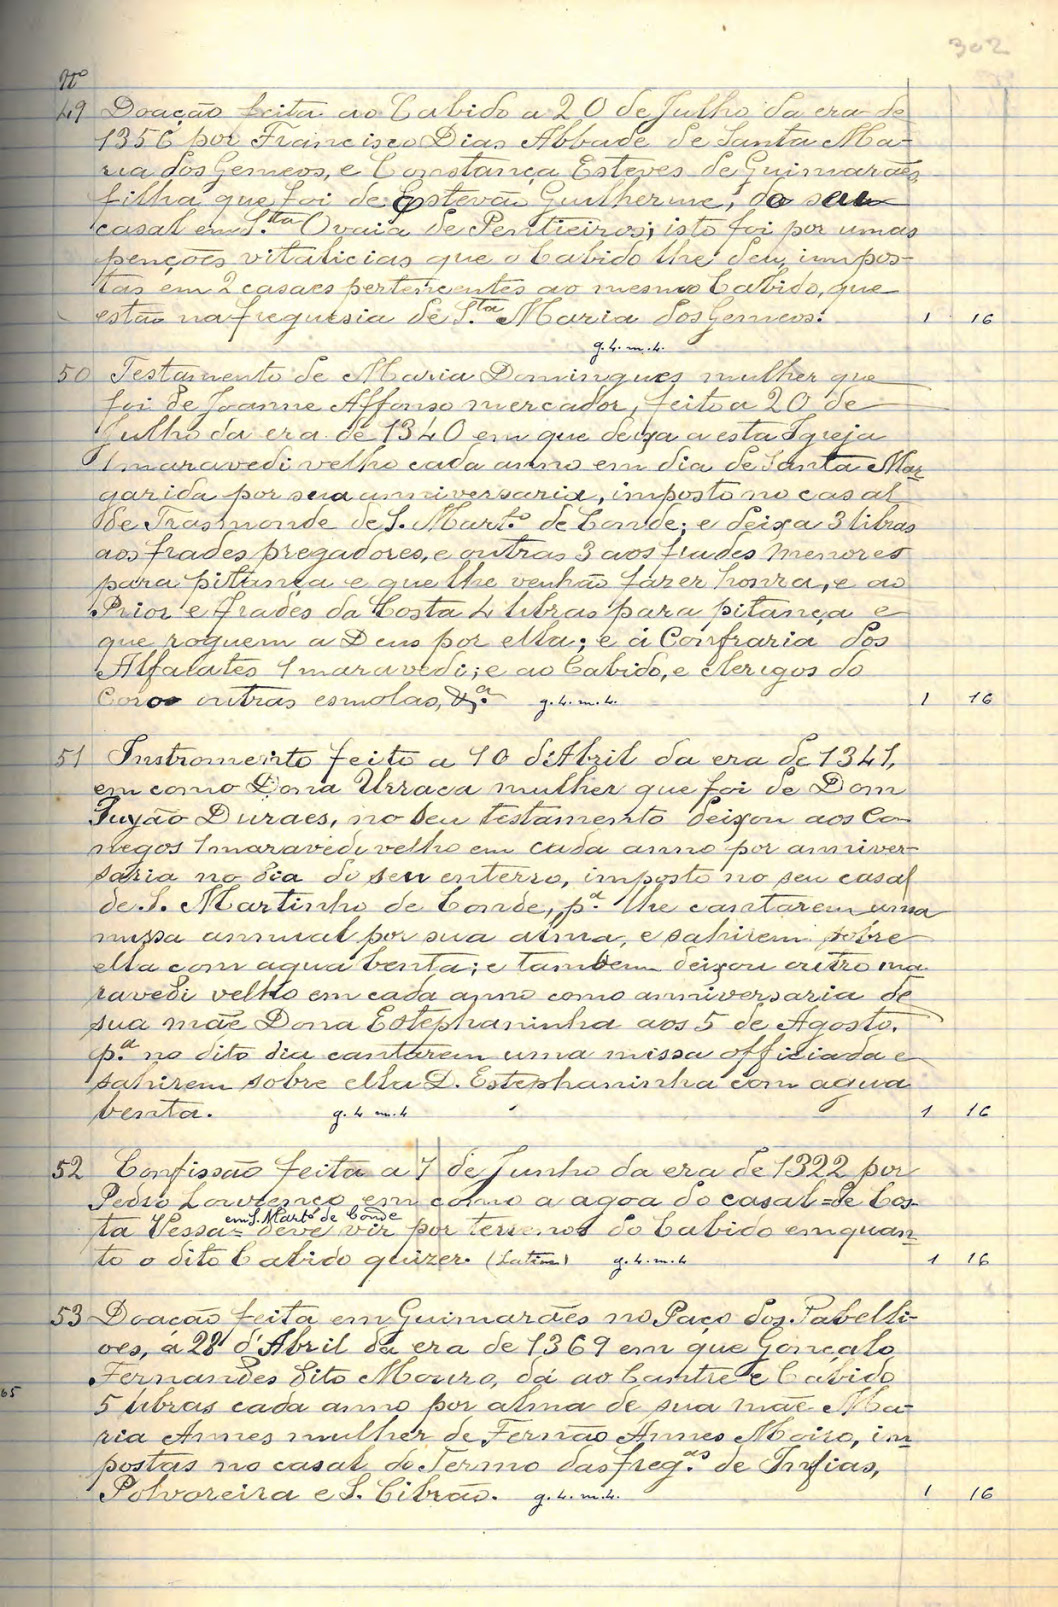 302
Nº
49 Doação feita ao Cabido a 20 de Julho da era de
1356 por Francisco Dias Abbade de Santa Ma-
ria dos Gemeos, e Constança Esteves de Guimarães,
filha que foi de Estevão Guilherme, do seu
casal em S.ta Ovaia de Pentieiros; isto foi por umas
penções vitalicias que o Cabido lhe deu, impos-
tas em 2 casaes pertencentes ao mesmo Cabido, que
estão na freguesia de S.ta Maria dos Gemeos. 1 16
g. 4. m. 4.
50 Testamento de Maria Domingues mulher que
foi de Joanne Affonso mercador, feito a 20 de
Julho da era de 1340 em que deixa a esta Igreja
1 maravedi velho cada anno em dia de Santa Mar-
garida por seu anniversaria, imposto no casal
de Trasmonde de S. Mart.º de Conde; e deixa 3 libras
aos frades pregadores, e outras 3 aos frades menores
para pitança e que lhe venhão fazer honra, e ao
Prior e frades da Costa 4 libras para pitança e
que roguem a Deus por ella; e á Confraria dos
Alfaiates 1 maravedi; e ao Cabido, e clerigos do
Coro outras esmolas, &.ª g. 4. m. 4. 1 16
51 Instromento feito a 10 d'Abril da era de 1341,
em como Dona Urraca mulher que foi de Dom
Juyão Duraes, no seu testamento deixou aos Co-
negos 1 maravedi velho em cada anno por anniver-
saria no dia do seu enterro, imposto no seu casal
de S. Martinho de Conde, p.ª lhe cantarem uma
missa annual por sua alma, e sahirem sobre
ella com agua benta; e tambem deixou outro ma-
ravedi velho em cada anno como anniversaria de
sua mãe Dona Estephaninha aos 5 de Agosto,
p.ª no dito dia cantarem uma missa officiada e
sahirem sobre ella D. Estephaninha com agua
benta. g. 4. m. 4 1 16
52 Confissão feita a 7 de Junho da era de 1322 por
Pedro Lourenço em como a agoa do casal =de Cos-
ta Vessa= em S. Mart.º de Conde deve vir por terrenos do Cabido emquan-
to o dito Cabido quizer. (Latim) g. 4. m. 4 1 16
53 Doação feita em Guimarães no Paço dos Tabelli-
oes, a 28 d'Abril da era de 1369 em que Gonçalo
Fernandes dito Mouro, dá ao Cantre e Cabido
65
5 libras cada anno por alma de sua mãe Ma-
ria Annes mulher de Fernão Annes Moiro, im-
postas no casal do Termo das freg.as de Infias,
Polvoreira e S. Cibrão. g. 4. m. 4. 1 16